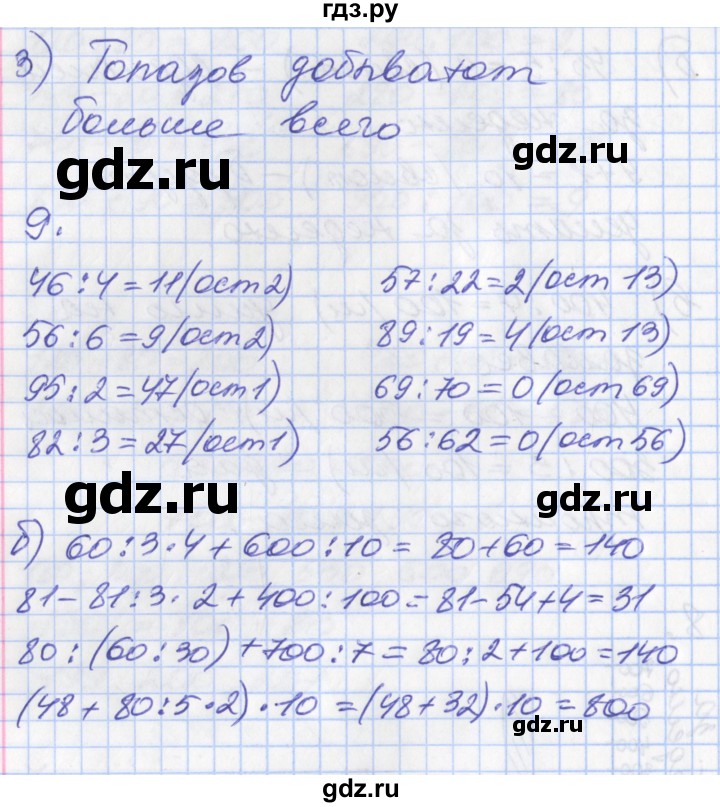 гдз.ру
3) Топазов добывают
больше всего
gdz.ru
gdz.ru
9.
46:4=11(ост2) 57:22=2(ост 13)
56:6=9(ост2) 89:19=4(ост 13)
95:2=47(ост1) 69:70=0(ост 69)
82:3=27(ост1) 56:62=0(ост 56)
gdz.ru
gdz.ru
б) 60:3·4+600:10= 80+60=140
81-81:3·2+400:100=81-54+4=31
80:(60:30)+700:7=80:2+100=140
(48+80:5·2)·10=(48+32)·10=800
gdz.ru
gdz.ru